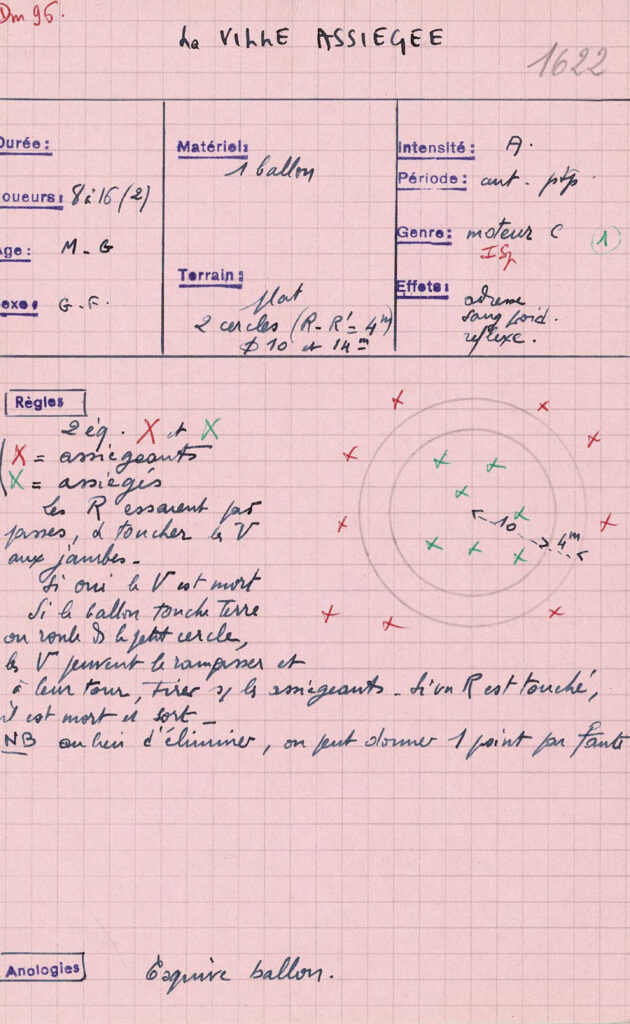 Dm 96.
La VILLE ASSIEGEE
1622
Durée:
Joueurs: 8 à 16 (2)
Age: M - G
Sexe: G - F.
Matériel:
1 ballon
Terrain:
plat
2 cercles (R - R' = 4m)
φ 10 et 14m
Intensité: A.
Période: aut. ptp.
Genre: moteur C 1
Effets:
adresse
sang froid.
réflexe.
Règles
2 éq. X et X
X = assiégeants
X = assiégés
Les R essaient par
passes, à toucher les V
aux jambes -
Si oui le V est mort
Si le ballon touche terre
ou roule ds le petit cercle,
les V peuvent le ramasser et
à leur tour, tirer s/ les assiégeants - Si un R est touché,
il est mort et sort -
NB au lieu d'éliminer, on peut donner 1 point par faute
10
4m
Analogies Esquive ballon.